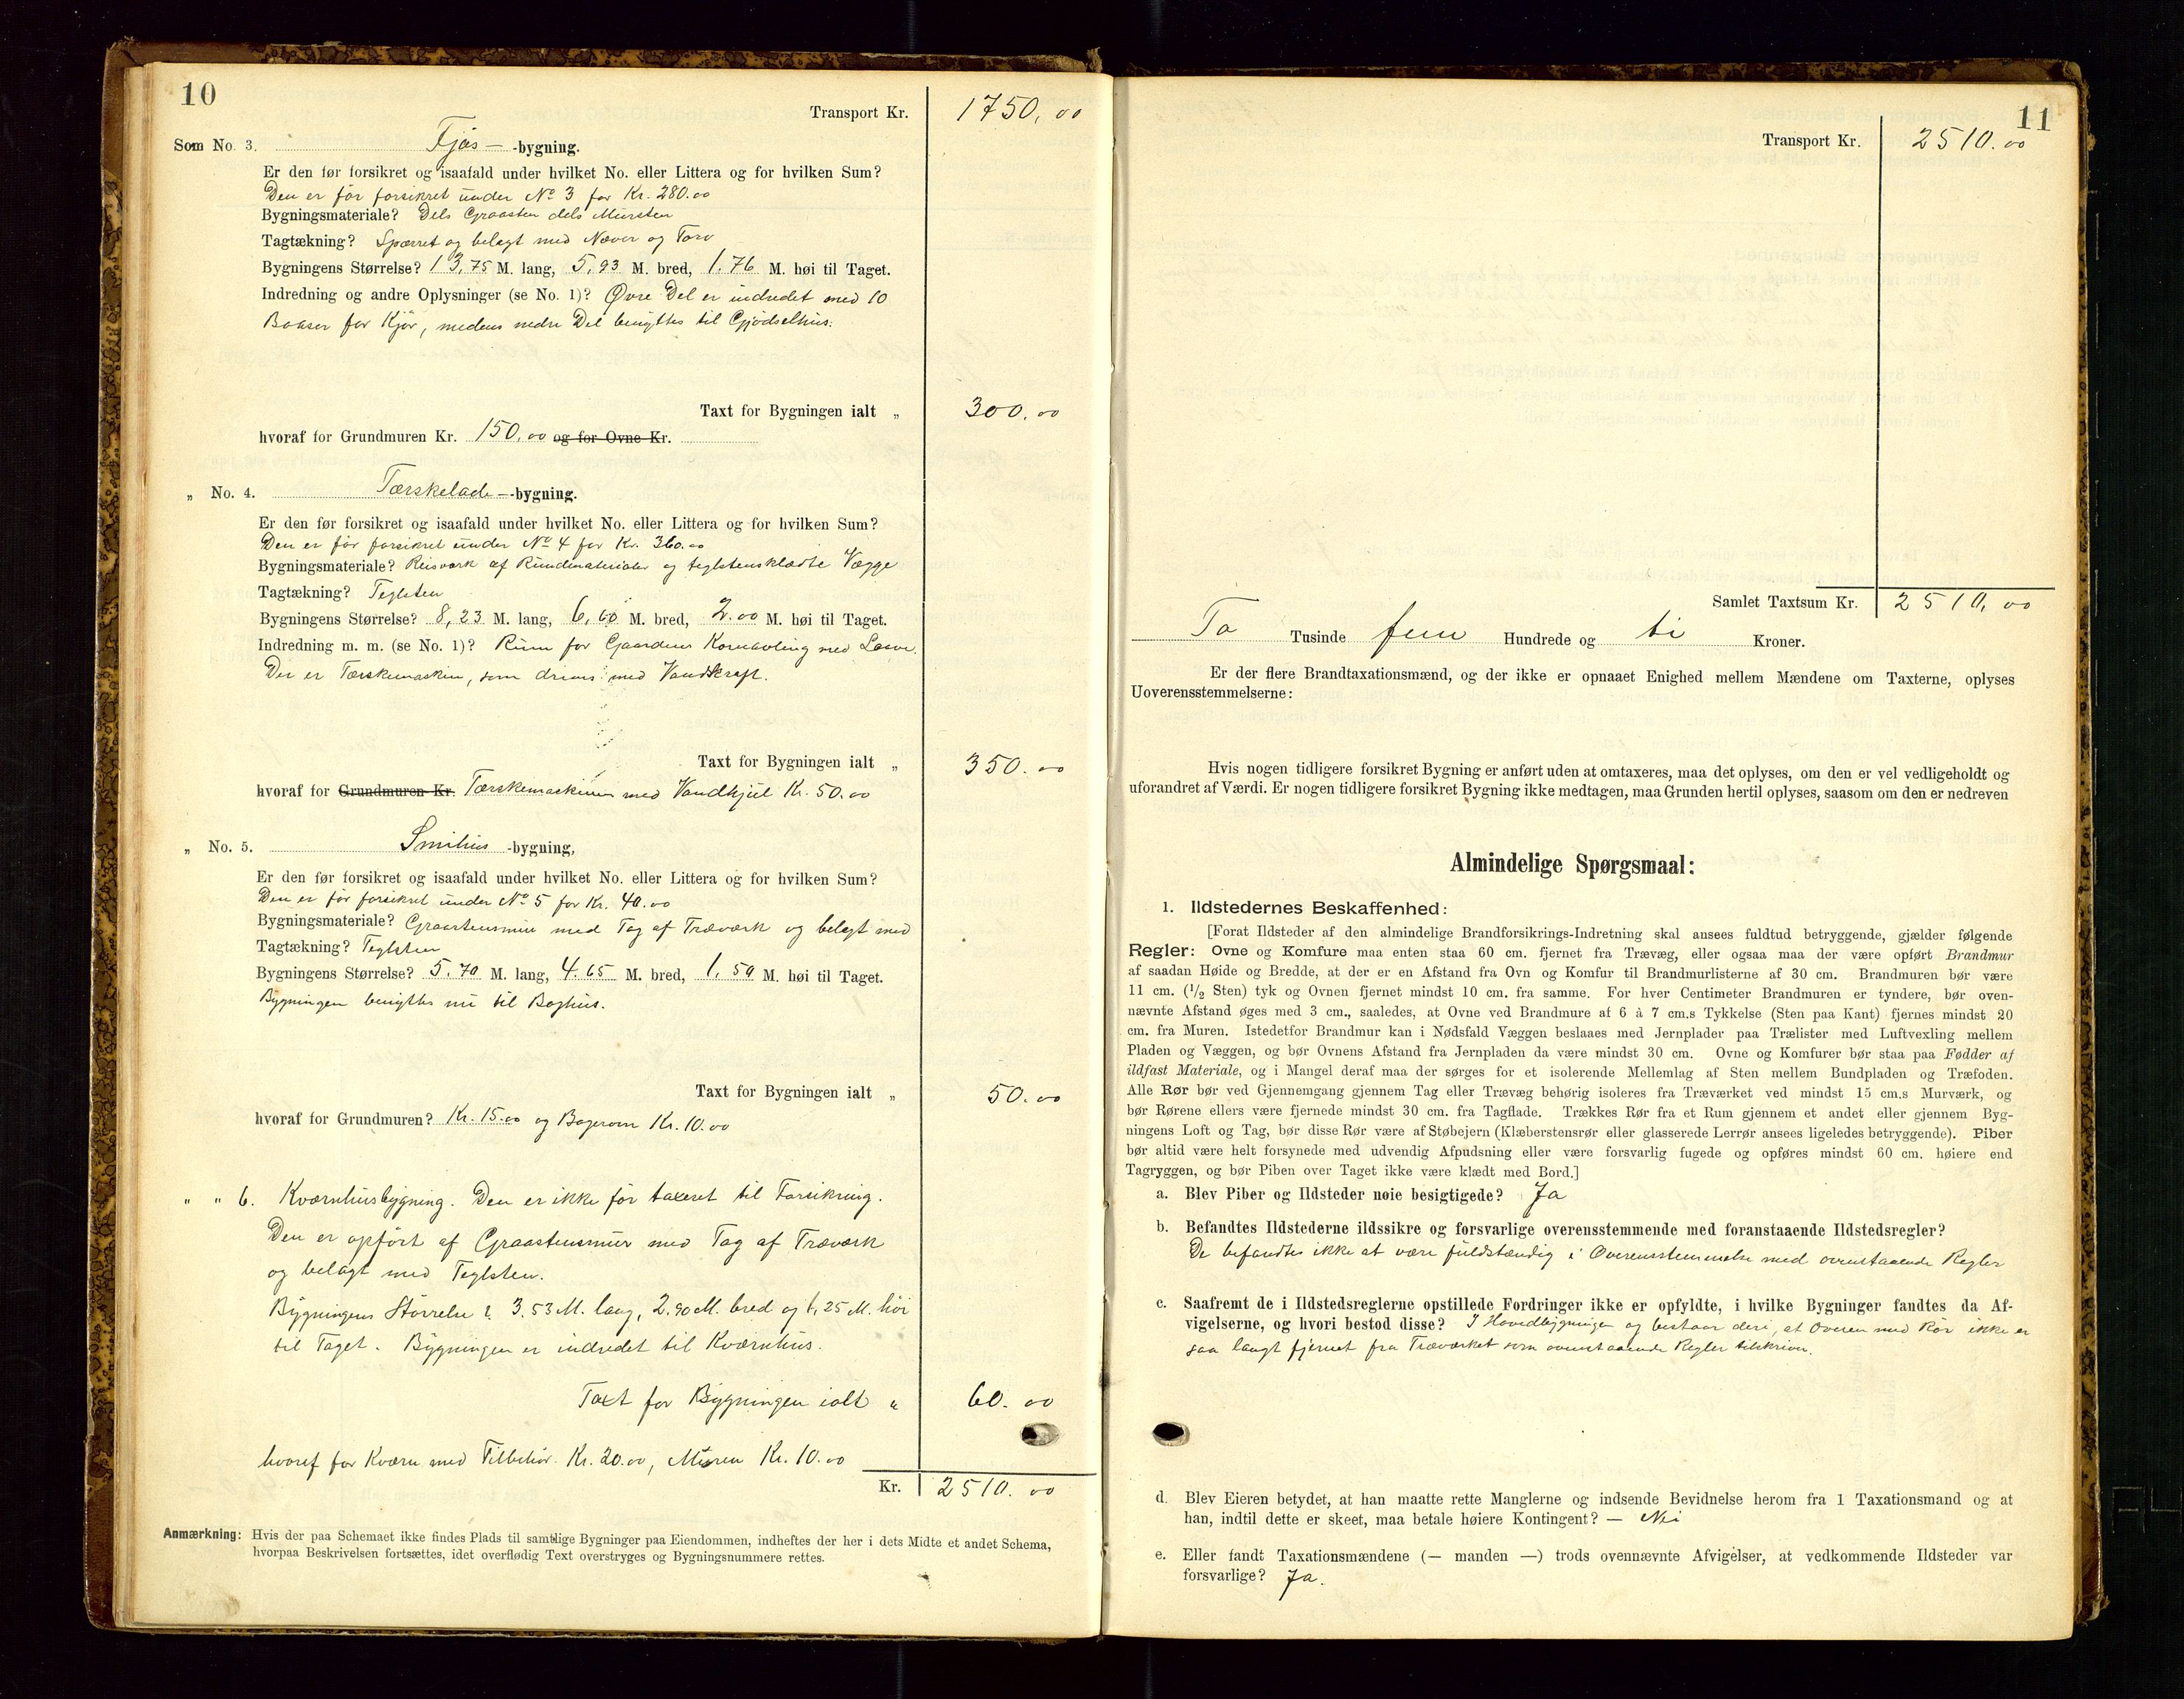 10
Transport Kr. 1750.00
Som No. 3. Fjøs- -bygning.
Er den før forsikret og isaafald under hvilket No. eller Littera og for hvilken Sum?
Den er før forsikret under No 3 for Kr. 280.00
Bygningsmateriale? Dels Graasten dels Mursten
Tagtækning? Sparret og belagt med Næver og Torv
Bygningens Størrelse? 13,75 M. lang, 5,93 M. bred, 1.76 M. høi til Taget.
Indredning og andre Oplysninger (se No. 1)? Øvre Del er indredet med 10
Baaser for Kjør, medens nedre Del benyttes til Gjødselhus.
Taxt for Bygningen ialt „ 300.00
hvoraf for Grundmuren Kr. 150.00 og for Ovne Kr.
„ No. 4. Tærskelade- -bygning.
Er den før forsikret og isaafald under hvilket No. eller Littera og for hvilken Sum?
Den er før forsikret under No 4 for Kr. 360.00
Bygningsmateriale? Reisværk af Rundmaterialer og teglstensklædte Vægge
Tagtækning? Teglsten
Bygningens Størrelse? 8,23 M. lang, 6,00 M. bred, 2.00 M. høi til Taget.
Indredning m. m. (se No. 1)? Rum for Gaardens Kornavling med Laave.
Der er Tærskemaskin, som drives med Vandkraft.
Taxt for Bygningen ialt „ 350.00
hvoraf for Grundmuren Kr. Tærskemaskinen med Vandhjul Kr. 50.00
„ No. 5. Smihus -bygning,
Er den før forsikret og isaafald under hvilket No. eller Littera og for hvilken Sum?
Den er før forsikret under No 5 for Kr. 40.00
Bygningsmateriale? Graastensmur med Tag af Træværk og belagt med
Tagtækning? Teglsten
Bygningens Størrelse? 5.70 M. lang, 4.65 M. bred, 1.50 M. høi til Taget.
Bygningen benyttes nu til Baghus.
Taxt for Bygningen ialt „ 50.00
hvoraf for Grundmuren? Kr. 15.00 og Bagerovn Kr. 10.00
„ „ 6. Kværnhusbygning. Den er ikke før taxeret til Forsikring.
Den er opført af Graastensmur med Tag af Træværk
og belagt med Teglsten.
Bygningens Størrelse? 3.53 M. lang, 2.90 M. bred og 1,25 M. høi
til Taget. Bygningen er indredet til Kværnhus.
Taxt for Bygningen ialt „ 60.00
hvoraf for Kværn med Tilbehør Kr. 20.00, Muren Kr. 10.00
Kr. 2510.00
Anmærkning: Hvis der paa Schemaet ikke findes Plads til samtlige Bygninger paa Eiendommen, indheftes der her i dets Midte et andet Schema,
hvorpaa Beskrivelsen fortsættes, idet overflødig Text overstryges og Bygningsnummere rettes.
11
Transport Kr. 2510.00
Samlet Taxtsum Kr. 2510.00
To Tusinde fem Hundrede og ti Kroner.
Er der flere Brandtaxationsmænd, og der ikke er opnaaet Enighed mellem Mændene om Taxterne, oplyses
Uoverensstemmelserne:
Hvis nogen tidligere forsikret Bygning er anført uden at omtaxeres, maa det oplyses, om den er vel vedligeholdt og
uforandret af Værdi. Er nogen tidligere forsikret Bygning ikke medtagen, maa Grunden hertil oplyses, saasom om den er nedreven
Almindelige Spørgsmaal:
1. Ildstedernes Beskaffenhed:
[Forat Ildsteder af den almindelige Brandforsikrings-Indretning skal ansees fuldtud betryggende, gjælder følgende
Regler: Ovne og Komfure maa enten staa 60 cm. fjernet fra Trævæg, eller ogsaa maa der være opført Brandmur
af saadan Høide og Bredde, at der er en Afstand fra Ovn og Komfur til Brandmurlisterne af 30 cm. Brandmuren bør være
11 cm. (1/2 Sten) tyk og Ovnen fjernet mindst 10 cm. fra samme. For hver Centimeter Brandmuren er tyndere, bør oven-
nævnte Afstand øges med 3 cm., saaledes, at Ovne ved Brandmure af 6 à 7 cm.s Tykkelse (Sten paa Kant) fjernes mindst 20
cm. fra Muren. Istedetfor Brandmur kan i Nødsfald Væggen beslaaes med Jernplader paa Trælister med Luftvexling mellem
Pladen og Væggen, og bør Ovnens Afstand fra Jernpladen da være mindst 30 cm. Ovne og Komfurer bør staa paa Fødder af
ildfast Materiale, og i Mangel deraf maa der sørges for et isolerende Mellemlag af Sten mellem Bundpladen og Træfoden.
Alle Rør bør ved Gjennemgang gjennem Tag eller Trævæg behørig isoleres fra Træværket ved mindst 15 cm.s Murværk, og
bør Rørene ellers være fjernede mindst 30 cm. fra Tagflade. Trækkes Rør fra et Rum gjennem et andet eller gjennem Byg-
ningens Loft og Tag, bør disse Rør være af Støbejern (Klæberstensrør eller glasserede Lerrør ansees ligeledes betryggende). Piber
bør altid være helt forsynede med udvendig Afpudsning eller være forsvarlig fugede og opføres mindst 60 cm. høiere end
Tagryggen, og bør Piben over Taget ikke være klædt med Bord.]
a. Blev Piber og Ildsteder nøie besigtigede? Ja
b. Befandtes Ildstederne ildssikre og forsvarlige overensstemmende med foranstaaende Ildstedsregler?
De befandtes ikke at være fuldstændig i Overensstemmelse med ovenstaaende Regler
c. Saafremt de i Ildstedsreglerne opstillede Fordringer ikke er opfyldte, i hvilke Bygninger fandtes da Af-
vigelserne, og hvori bestod disse? I Hovedbygningen og bestaar deri, at Ovnen med Rør ikke er
saa langt fjernet fra Træværket som ovenstaaende Regler tilskriver.
d. Blev Eieren betydet, at han maatte rette Manglerne og indsende Bevidnelse herom fra 1 Taxationsmand og at
han, indtil dette er skeet, maa betale høiere Kontingent? — Nei
e. Eller fandt Taxationsmændene (— manden —) trods ovennævnte Afvigelser, at vedkommende Ildsteder var
forsvarlige? Ja.